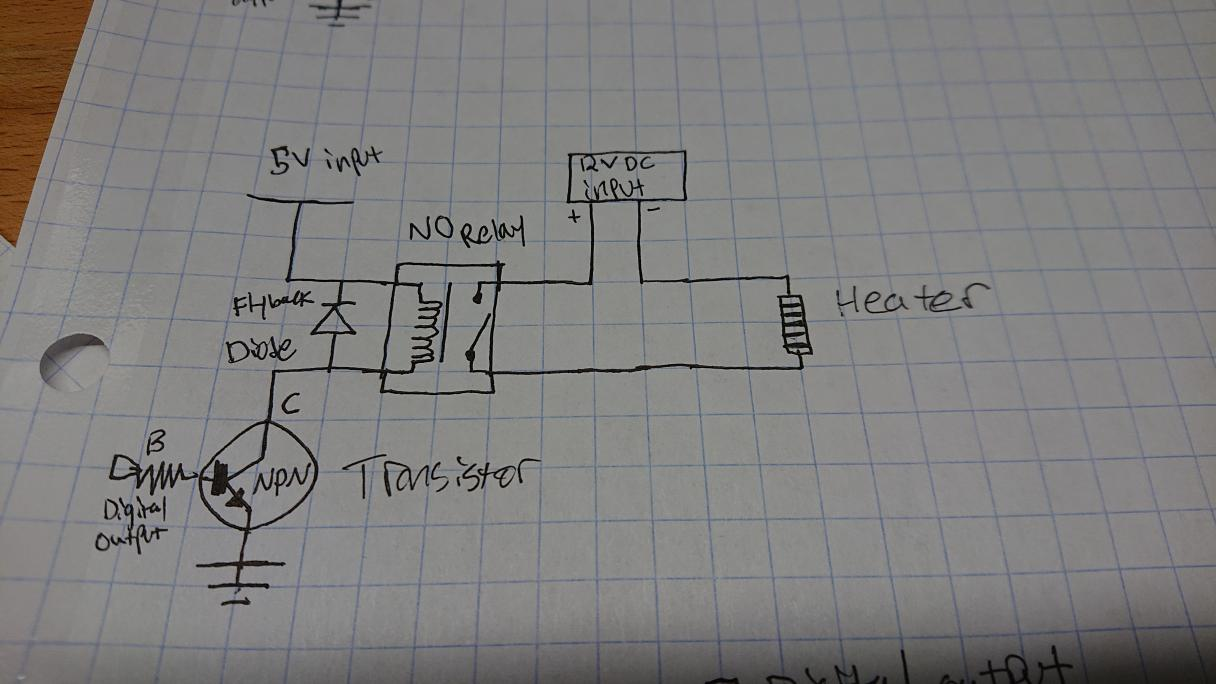 5V input
12V DC
input
+ -
NO Relay
Flyback
Diode
Heater
C
B
NPN
Transistor
Digital
output
output